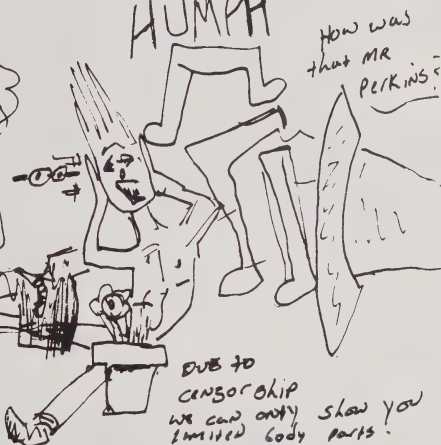 HUMPH
How was
that MR
Perkins?
DUE to
censorship
we can only show you
limited body parts.